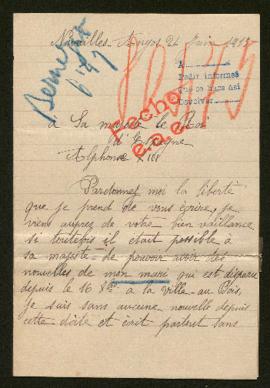 Juin 1917
Berne
A
Pedir informes
Devolver
Hecho
à Sa majesté le Roi
d'Espagne
Alphonse XIII
Pardonnez moi la liberté
que je prend de vous écrire, je
viens auprès de votre bienveillance
si toutefois il était possible à
sa majesté de pouvoir avoir des
nouvelles de mon mari qui est disparu
depuis le 16 à la ville au Bois,
Je suis sans aucune nouvelle depuis
cette date et écrit partout sans